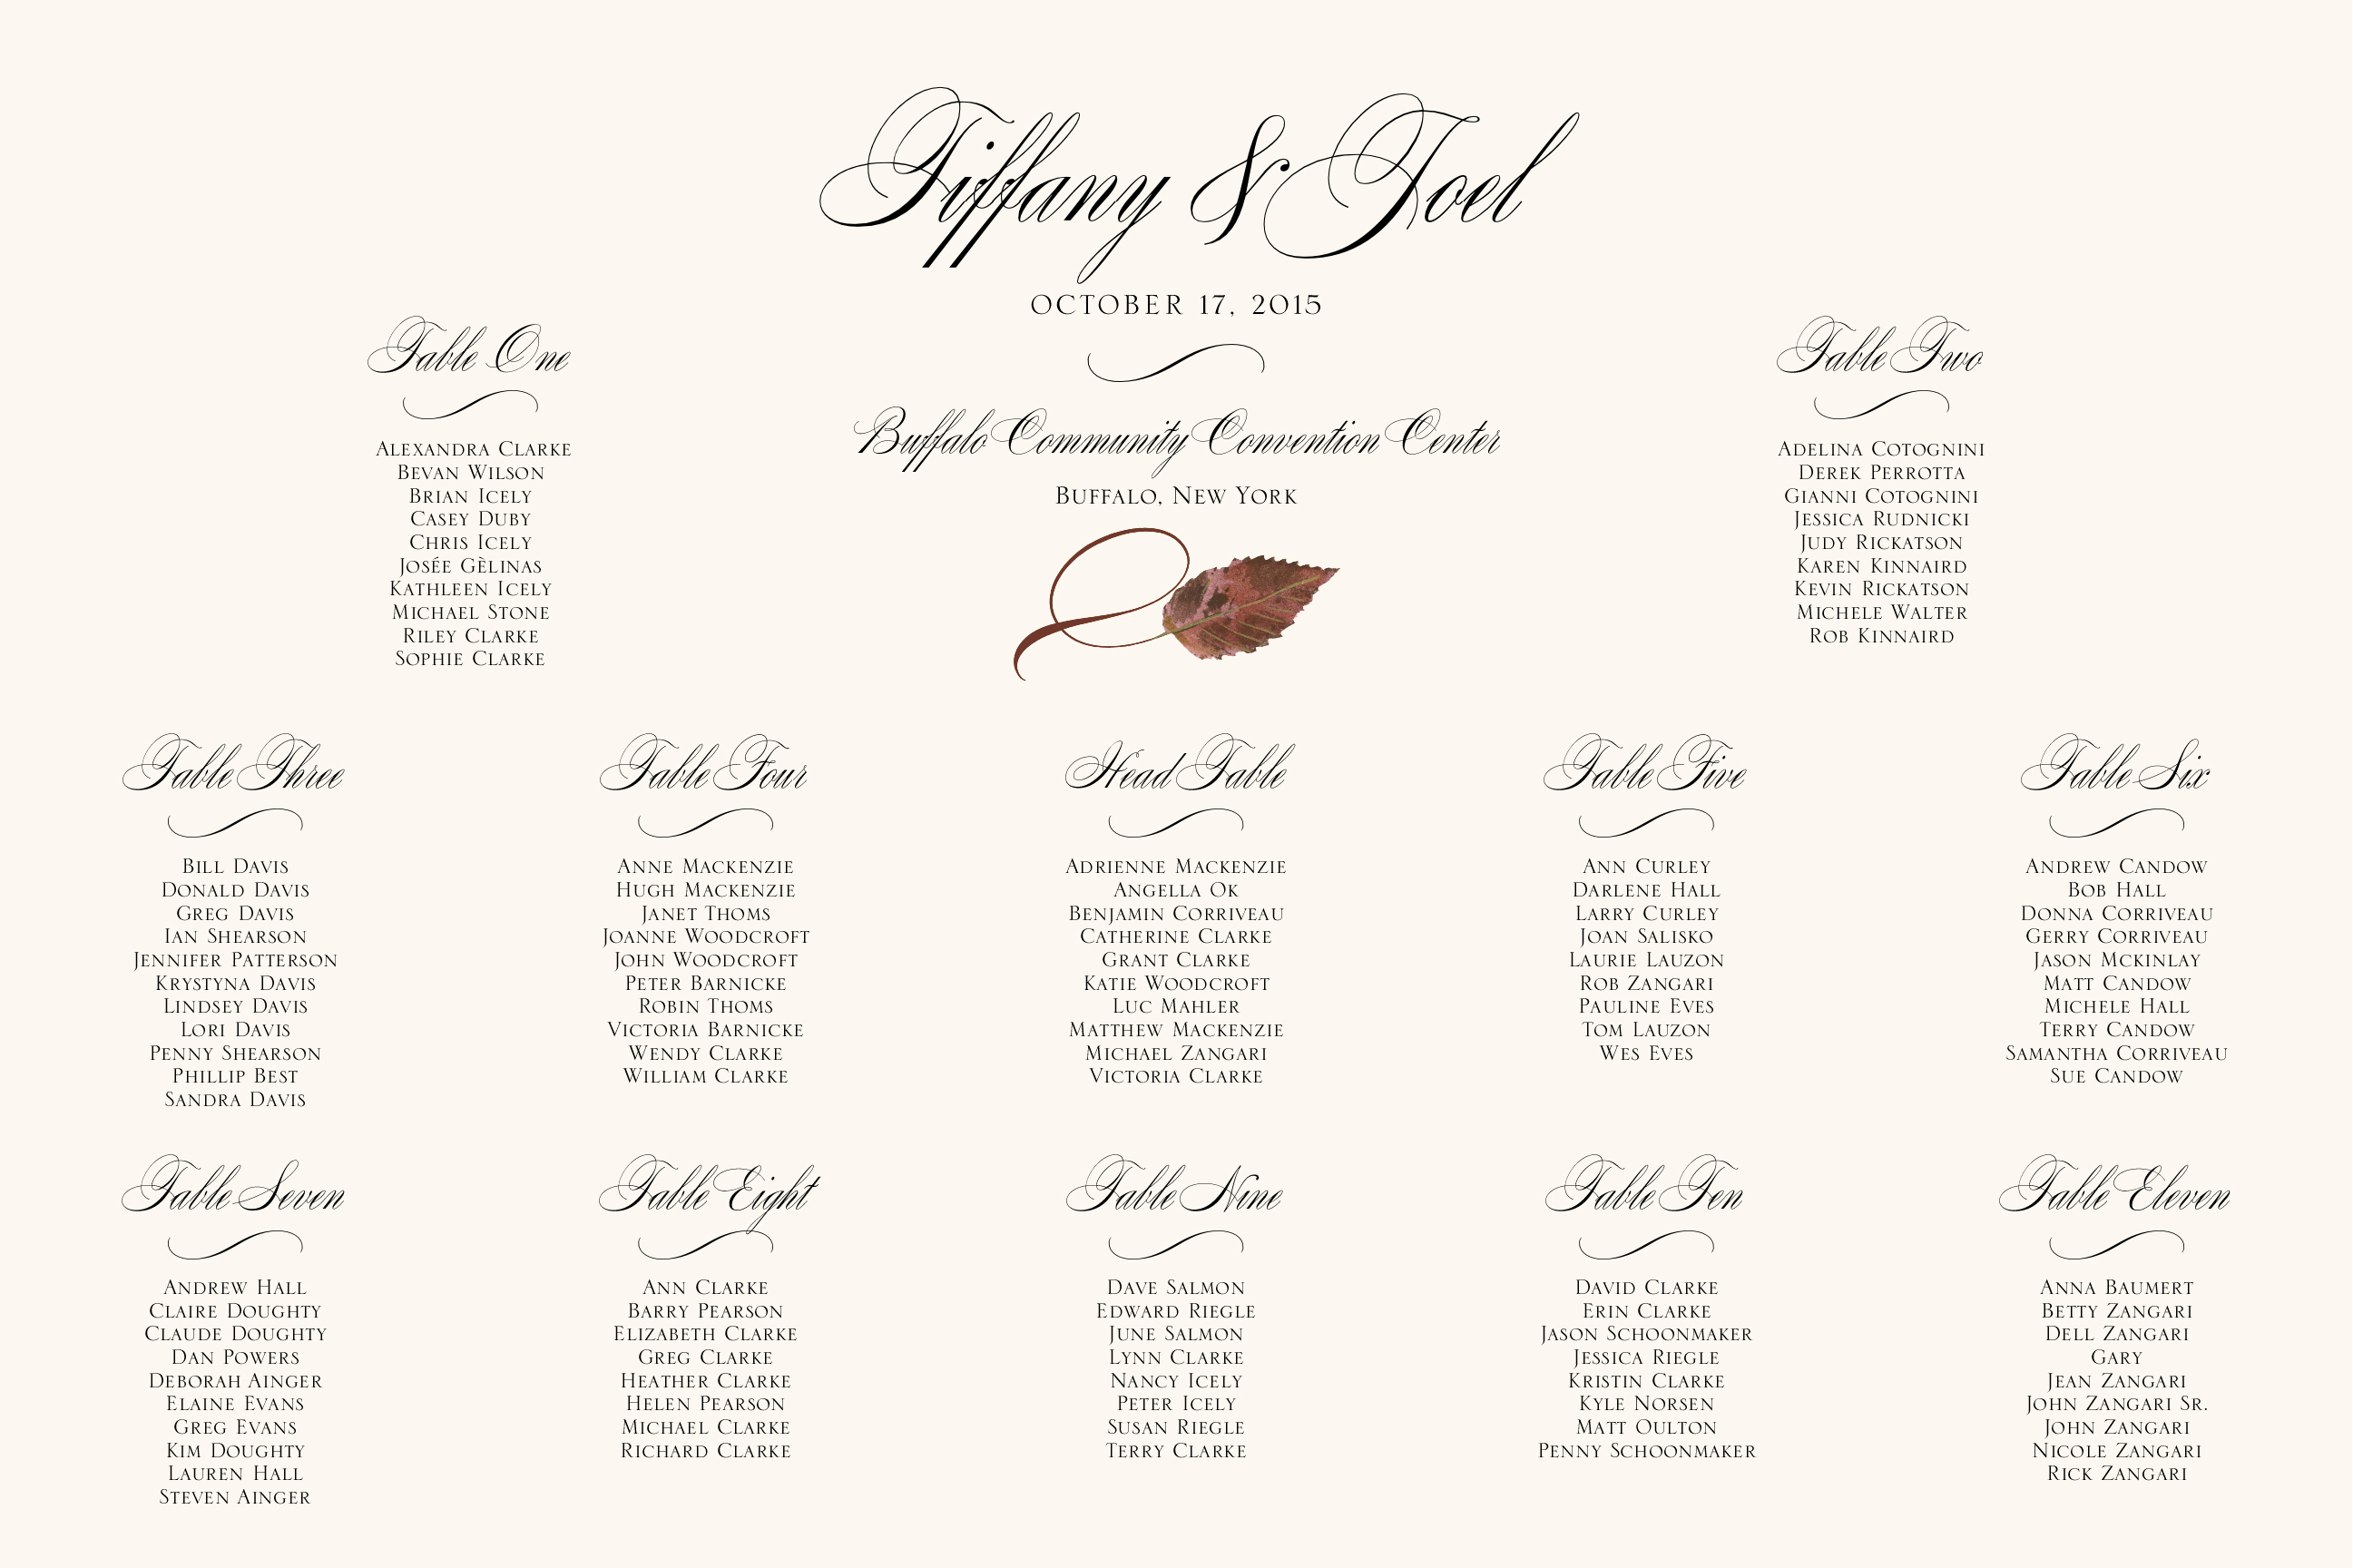 Tiffany & Joel
OCTOBER 17, 2015
Buffalo Community Convention Center
BUFFALO, NEW YORK
Table One
ALEXANDRA CLARKE
BEVAN WILSON
BRIAN ICELY
CASEY DUBY
CHRIS ICELY
JOSÉE GÈLINAS
KATHLEEN ICELY
MICHAEL STONE
RILEY CLARKE
SOPHIE CLARKE
Table Two
ADELINA COTOGNINI
DEREK PERROTTA
GIANNI COTOGNINI
JESSICA RUDNICKI
JUDY RICKATSON
KAREN KINNAIRD
KEVIN RICKATSON
MICHELE WALTER
ROB KINNAIRD
Table Three
BILL DAVIS
DONALD DAVIS
GREG DAVIS
IAN SHEARSON
JENNIFER PATTERSON
KRYSTYNA DAVIS
LINDSEY DAVIS
LORI DAVIS
PENNY SHEARSON
PHILLIP BEST
SANDRA DAVIS
Table Four
ANNE MACKENZIE
HUGH MACKENZIE
JANET THOMS
JOANNE WOODCROFT
JOHN WOODCROFT
PETER BARNICKE
ROBIN THOMS
VICTORIA BARNICKE
WENDY CLARKE
WILLIAM CLARKE
Head Table
ADRIENNE MACKENZIE
ANGELLA OK
BENJAMIN CORRIVEAU
CATHERINE CLARKE
GRANT CLARKE
KATIE WOODCROFT
LUC MAHLER
MATTHEW MACKENZIE
MICHAEL ZANGARI
VICTORIA CLARKE
Table Five
ANN CURLEY
DARLENE HALL
LARRY CURLEY
JOAN SALISKO
LAURIE LAUZON
ROB ZANGARI
PAULINE EVES
TOM LAUZON
WES EVES
Table Six
ANDREW CANDOW
BOB HALL
DONNA CORRIVEAU
GERRY CORRIVEAU
JASON MCKINLAY
MATT CANDOW
MICHELE HALL
TERRY CANDOW
SAMANTHA CORRIVEAU
SUE CANDOW
Table Seven
ANDREW HALL
CLAIRE DOUGHTY
CLAUDE DOUGHTY
DAN POWERS
DEBORAH AINGER
ELAINE EVANS
GREG EVANS
KIM DOUGHTY
LAUREN HALL
STEVEN AINGER
Table Eight
ANN CLARKE
BARRY PEARSON
ELIZABETH CLARKE
GREG CLARKE
HEATHER CLARKE
HELEN PEARSON
MICHAEL CLARKE
RICHARD CLARKE
Table Nine
DAVE SALMON
EDWARD RIEGLE
JUNE SALMON
LYNN CLARKE
NANCY ICELY
PETER ICELY
SUSAN RIEGLE
TERRY CLARKE
Table Ten
DAVID CLARKE
ERIN CLARKE
JASON SCHOONMAKER
JESSICA RIEGLE
KRISTIN CLARKE
KYLE NORSEN
MATT OULTON
PENNY SCHOONMAKER
Table Eleven
ANNA BAUMERT
BETTY ZANGARI
DELL ZANGARI
GARY
JEAN ZANGARI
JOHN ZANGARI SR.
JOHN ZANGARI
NICOLE ZANGARI
RICK ZANGARI